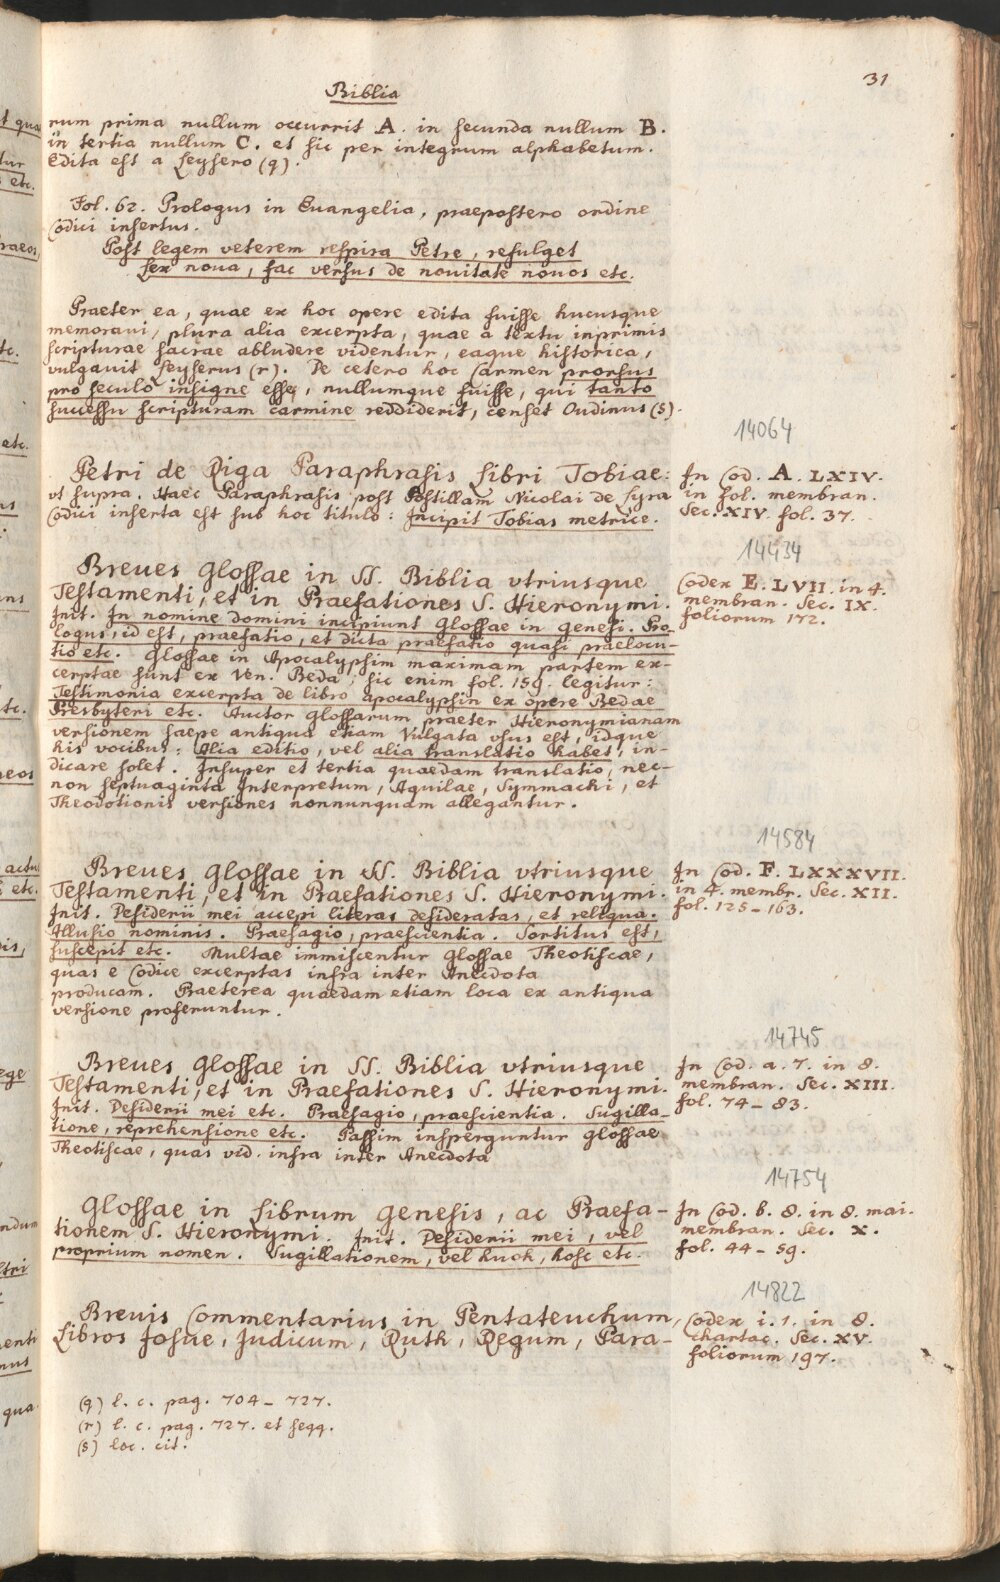 31
Biblia
rum prima nullum occurrit A. in secunda nullum B.
in tertia nullum C. et sic per integrum alphabetum.
Edita est a Leysero (q).
Fol. 62. Prologus in Euangelia, praepostero ordine
Codici insertus.
Post legem veterem respira Petre, refulget
Lex noua, fac versus de nouitate nouos etc.
Praeter ea, quae ex hoc opere edita fuisse hucusque
memoraui, plura alia excerpta, quae a textu inprimis
scripturae sacrae abludere videntur, eaque historica,
vulgauit Leyserus (r). De cetero hoc Carmen prorsus
pro seculo insigne esse, nullumque fuisse, qui tanto
successu scripturam carmine reddiderit, censet Oudinus (s).
14064
Petri de Riga Paraphrasis Libri Tobiae:
vt supra. Haec Paraphrasis post Postillam Nicolai de Lyra
Codici inserta est sub hoc titulo: Incipit Tobias metrice.
In Cod. A. LXIV.
in fol. membran.
Sec. XIV. fol. 37.
14434
Breues Glossae in SS. Biblia vtriusque
Testamenti, et in Praefationes S. Hieronymi.
Init. In nomine domini incipiunt Glossae in Genesi. Pro-
logus, id est, praefatio, et dicta praefatio quasi praelocu-
tio etc. Glossae in Apocalypsim maximam partem ex-
cerptae sunt ex Ven. Beda, sic enim fol. 159. legitur:
Testimonia excerpta de libro apocalypsin ex opere Bedae
Presbyteri etc. Auctor Glossarum praeter Hieronymianam
versionem saepe antiqua etiam Vulgata vsus est, idque
his vocibus: Alia editio, vel alia translatio habet, in-
dicare solet. Insuper et tertia quaedam translatio, nec-
non septuaginta Interpretum, Aquilae, Symmachi, et
Theodotionis versiones nonnunquam allegantur.
Codex E. LVII. in 4.
membran. Sec. IX.
foliorum 172.
14584
Breues Glossae in SS. Biblia vtriusque
Testamenti, et in Praefationes S. Hieronymi.
Init. Desiderii mei accepi literas desideratas, et reliqua.
Allusio nominis. Praesagio, praescientia. Sortitus est,
suscepit etc. Multae immiscentur Glossae Theotiscae,
quas e Codice excerptas infra inter Anecdota
producam. Praeterea quaedam etiam loca ex antiqua
versione proferuntur.
In Cod. F. LXXXVII.
in 4. membr. Sec. XII.
fol. 125-163.
14745
Breues Glossae in SS. Biblia vtriusque
Testamenti, et in Praefationes S. Hieronymi.
Init. Desiderii mei etc. Praesagio, praescientia. Sugilla-
tione, reprehensione etc. Passim insperguntur Glossae
Theotiscae, quas vid. infra inter Anecdota
In Cod. a. 7. in 8.
membran. Sec. XIII.
fol. 74-83.
14754
Glossae in Librum Genesis, ac Praefa-
tionem S. Hieronymi. Init. Desiderii mei, vel
proprium nomen. Sugillationem, vel huoh, hosc etc.
In Cod. b. 8. in 8. mai.
membran. Sec. X.
fol. 44-59.
14822
Breuis Commentarius in Pentateuchum,
Libros Josue, Judicum, Ruth, Regum, Para-
Codex i. 1. in 8.
chartac. Sec. XV.
foliorum 197.
(q) l. c. pag. 704-727.
(r) l. c. pag. 727. et seqq.
(s) loc. cit.